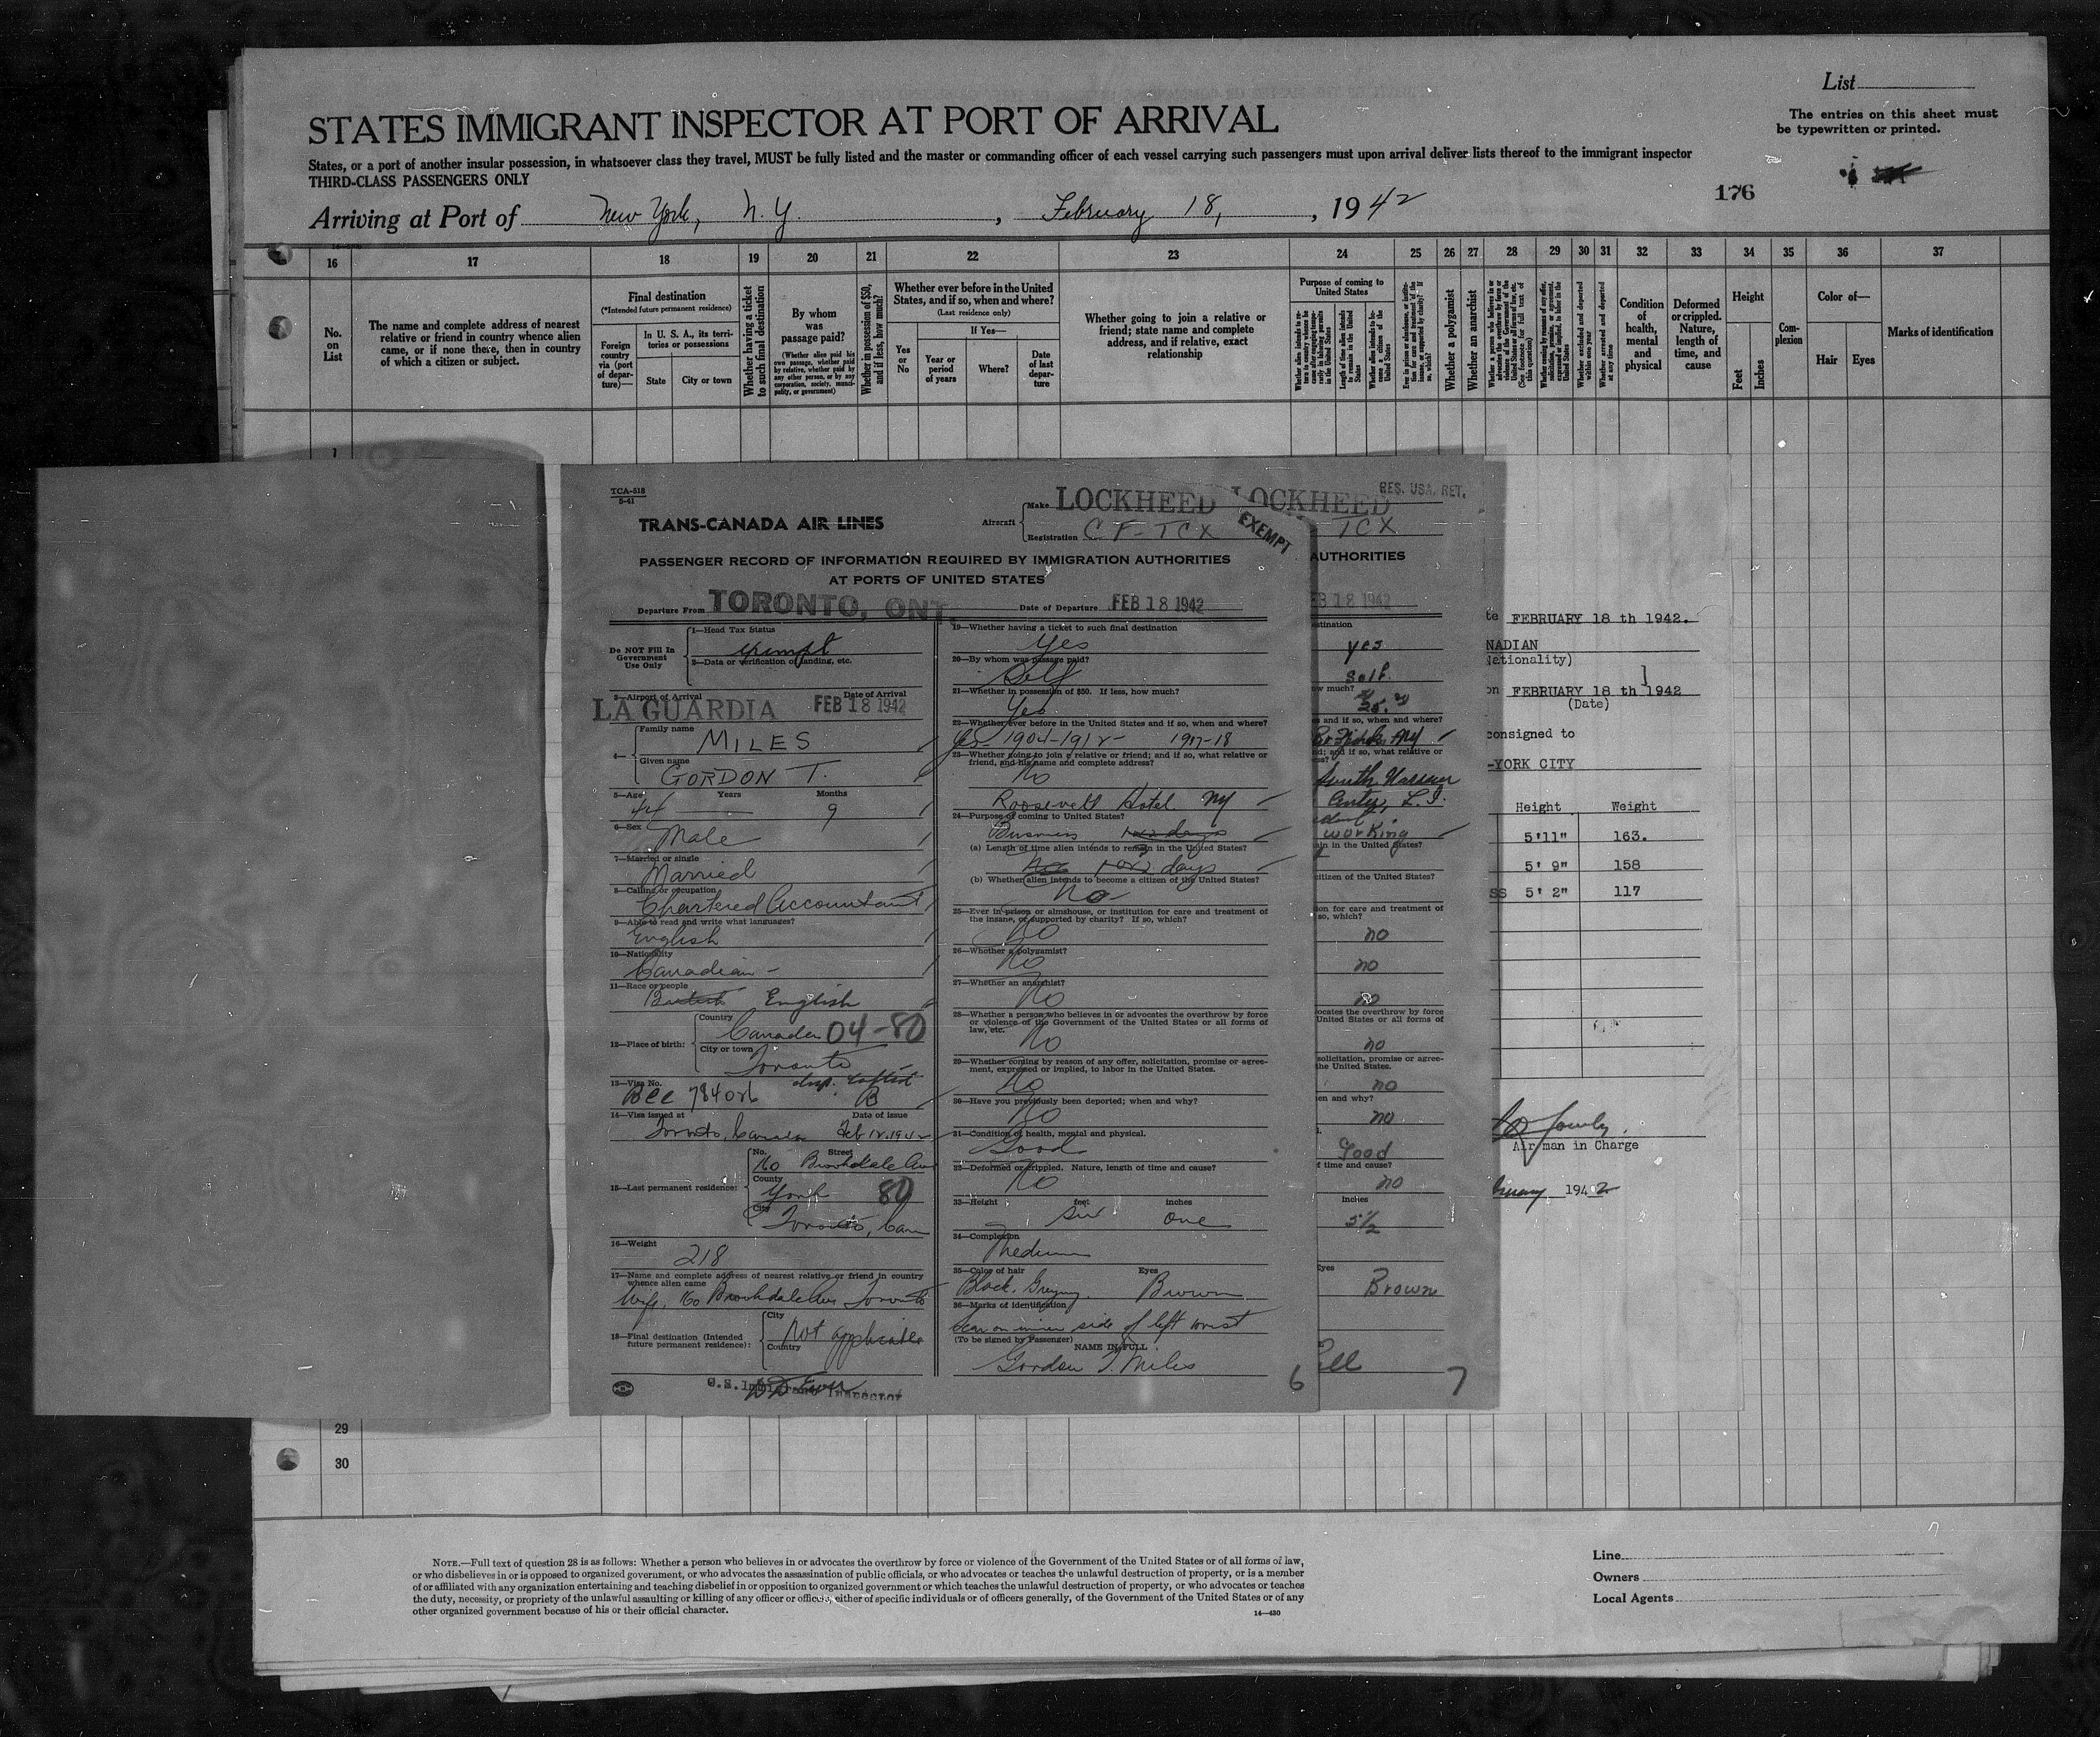 List
The entries on this sheet must
be typewritten or printed.
STATES IMMIGRANT INSPECTOR AT PORT OF ARRIVAL
States, or a port of another insular possession, in whatsoever class they travel, MUST be fully listed and the master or commanding officer of each vessel carrying such passengers must upon arrival deliver lists thereof to the immigrant inspector
THIRD-CLASS PASSENGERS ONLY
176
Arriving at Port of New York, N.Y., February 18, 1942
16 17 18 19 20 21 22 23 24 25 26 27 28 29 30 31 32 33 34 35 36 37
No. on List
The name and complete address of nearest
relative or friend in country whence alien
came, or if none there, then in country
of which a citizen or subject.
Final destination
(*Intended future permanent residence)
Foreign country via (port of departure)—
In U. S. A., its territories or possessions
State
City or town
Whether having a ticket to such final destination
By whom was passage paid?
(Whether alien paid his own passage, whether paid by relative, whether paid by any other person, or by any corporation, society, municipality, or government)
Whether in possession of $50, and if less, how much?
Whether ever before in the United
States, and if so, when and where?
(Last residence only)
If Yes—
Yes or No
Year or period of years
Where?
Date of last departure
Whether going to join a relative or
friend; state name and complete
address, and if relative, exact
relationship
Purpose of coming to
United States
Length of time alien intends to remain in the United States
Whether a polygamist
Whether an anarchist
Whether excluded and deported within one year
Whether arrested and deported at any time
Condition of health, mental and physical
Deformed or crippled. Nature, length of time, and cause
Height
Feet
Inches
Complexion
Color of—
Hair
Eyes
Marks of identification
1
TCA-518
5-41
TRANS-CANADA AIR LINES
Aircraft
Make LOCKHEED
Registration CF-TCX
EXEMPT
PASSENGER RECORD OF INFORMATION REQUIRED BY IMMIGRATION AUTHORITIES
AT PORTS OF UNITED STATES
Departure From TORONTO, ONT.
Date of Departure FEB 18 1942
Do NOT Fill In
Government
Use Only
1—Head Tax Status
exempt
2—Data or verification of landing, etc.
3—Airport of Arrival
Date of Arrival
LA GUARDIA FEB 18 1942
4—
Family name
MILES
Given name
GORDON T.
5—Age Years Months
44 9
6—Sex
Male
7—Married or single
Married
8—Calling or occupation
Chartered Accountant
9—Able to read and write what languages?
English
10—Nationality
Canadian -
11—Race or people
British English
12—Place of birth:
Country
Canada 04-80
City or town
Toronto
13—Visa No.
BCC 784026
B
14—Visa issued at Date of issue
Toronto, Canada Feb 12, 1942
15—Last permanent residence:
No. Street
160 Brookdale Ave
County
York 80
City
Toronto, Can
16—Weight
218
17—Name and complete address of nearest relative or friend in country
whence alien came
Wife, 160 Brookdale Ave Toronto
18—Final destination (Intended
future permanent residence):
City
Not applicable
Country
U.S. Immigrant Inspector
19—Whether having a ticket to such final destination
Yes
20—By whom was passage paid?
Self
21—Whether in possession of $50. If less, how much?
Yes
22—Whether ever before in the United States and if so, when and where?
Yes - 1904-1912 - 1917-18
23—Whether going to join a relative or friend; and if so, what relative or
friend, and his name and complete address?
No
Roosevelt Hotel NY
24—Purpose of coming to United States?
Business 1 or 2 days
(a) Length of time alien intends to remain in the United States?
No 1 or 2 days
(b) Whether alien intends to become a citizen of the United States?
No
25—Ever in prison or almshouse, or institution for care and treatment of
the insane, or supported by charity? If so, which?
No
26—Whether a polygamist?
No
27—Whether an anarchist?
No
28—Whether a person who believes in or advocates the overthrow by force
or violence of the Government of the United States or all forms of
law, etc.
No
29—Whether coming by reason of any offer, solicitation, promise or agree-
ment, expressed or implied, to labor in the United States.
No
30—Have you previously been deported; when and why?
No
31—Condition of health, mental and physical.
Good
32—Deformed or crippled. Nature, length of time and cause?
No
33—Height feet inches
Six One
34—Complexion
Medium
35—Color of hair Eyes
Black. Greying. Brown
36—Marks of identification
Scar on inner side of left wrist
(To be signed by Passenger)
NAME IN FULL
Gordon T. Miles
6
RES. USA. RET.
LOCKHEED
TCX
AUTHORITIES
FEB 18 1942
stination
yes
self
ow much?
s and if so, when and where?
nd; and if so, what relative or
South
working
ain in the United States?
citizen of the United States?
ion for care and treatment of
so, which?
no
no
no
ocates the overthrow by force
United States or all forms of
no
solicitation, promise or agree-
the United States.
no
en and why?
no
Good
f time and cause?
no
inches
5½
Eyes
Brown
ell
7
te FEBRUARY 18 th 1942.
NADIAN
Nationality)
on FEBRUARY 18 th 1942
(Date)
consigned to
-YORK CITY
Height Weight
5'11" 163.
5' 9" 158
SS 5' 2" 117
Airman in Charge
ruary 1942
29
30
NOTE.—Full text of question 28 is as follows: Whether a person who believes in or advocates the overthrow by force or violence of the Government of the United States or of all forms of law,
or who disbelieves in or is opposed to organized government, or who advocates the assassination of public officials, or who advocates or teaches the unlawful destruction of property, or is a member
of or affiliated with any organization entertaining and teaching disbelief in or opposition to organized government or which teaches the unlawful destruction of property, or who advocates or teaches
the duty, necessity, or propriety of the unlawful assaulting or killing of any officer or officers, either of specific individuals or of officers generally, of the Government of the United States or of any
other organized government because of his or their official character.
14—430
Line
Owners
Local Agents